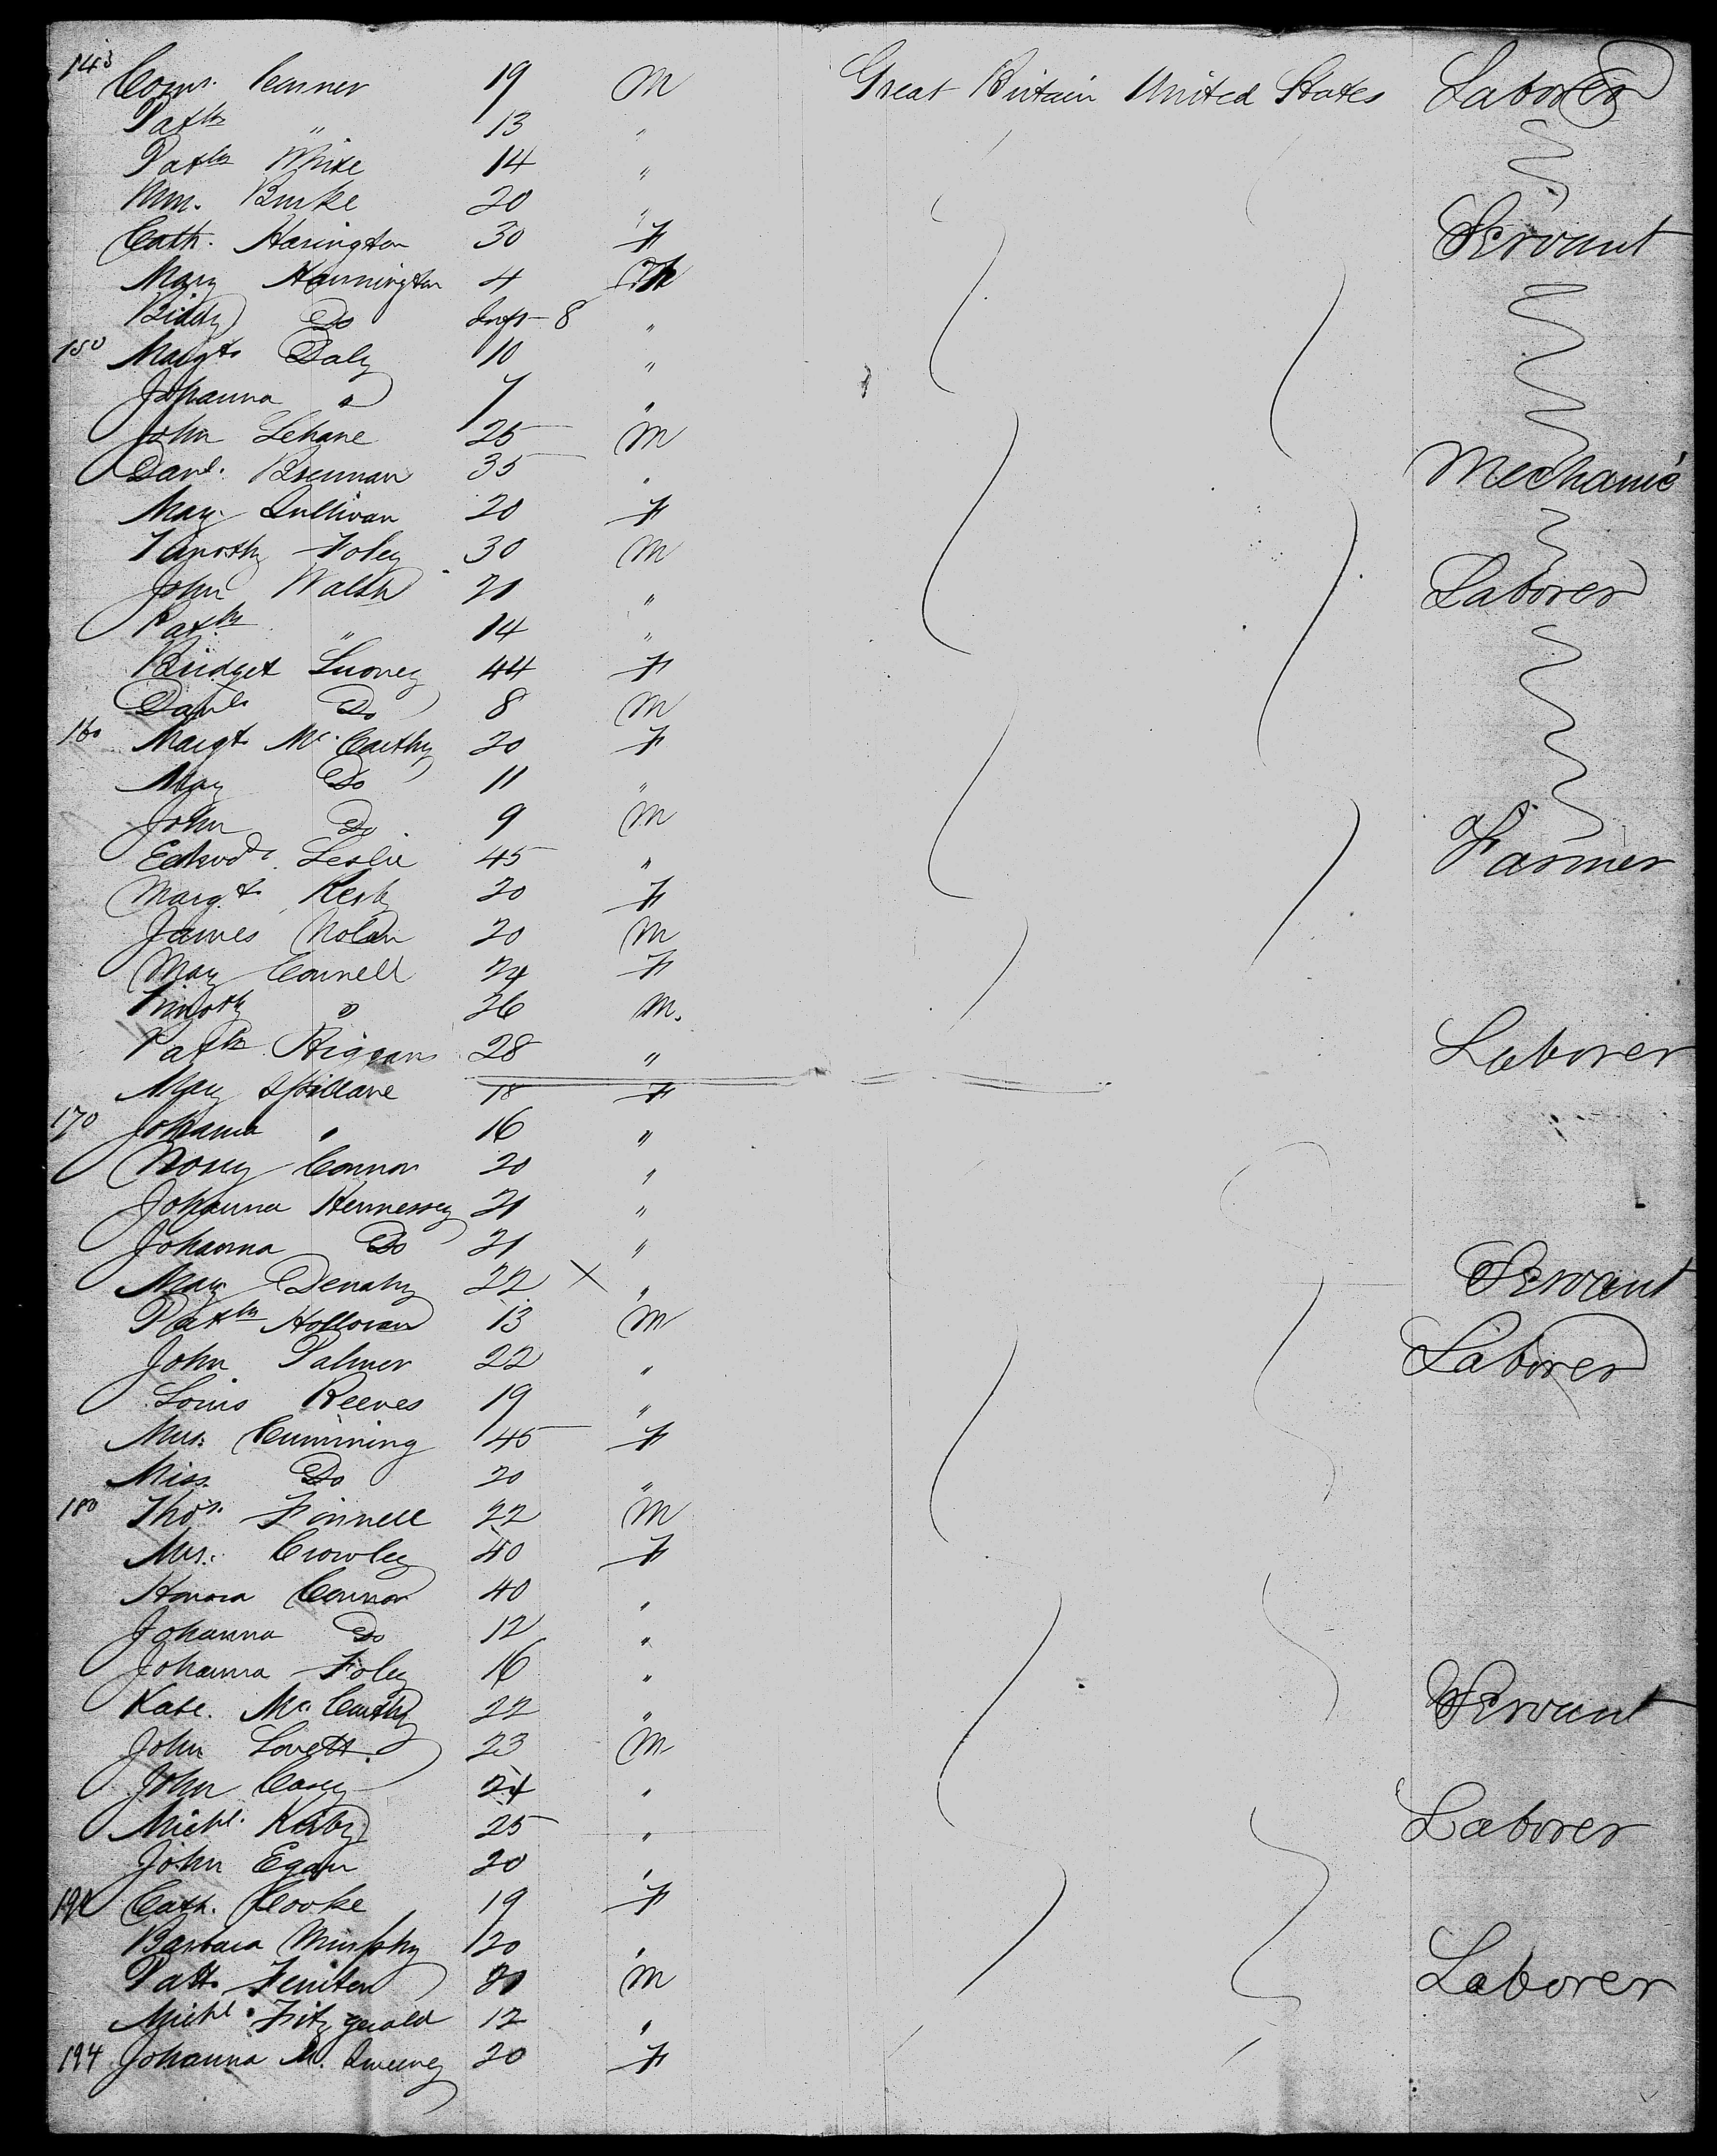 143 Corns. Conner 19 M Great Britain United States Laborer
Patk " 13 "
Patk White 14 "
Wm. Burke 20 "
Cath. Harington 30 F Servant
Mary Harrington 4
Biddy Do Inft - 8 "
150 Margt Daly 10 "
Johanna " 7 "
John Lehane 25 M
Danl. Brennan 35 " Mechanic
May Sullivan 20 F
Timothy Foley 30 M
John Walsh 21 " Laborer
Patk " 14 "
Bridget Luoney 44 F
Danl Do 8 M
160 Margt Mc Carthy 20 F
May Do 11 "
John Do 9 M
Edwd Leslie 45 " Farmer
Margt Kerby 20 F
James Nolan 20 M
May Connell 24 F
Timothy " 26 M.
Patk Higgans 28 " Laborer
Mary Spillane 18 F
170 Johana " 16 "
Norey Connor 20 "
Johanna Hennessy 21 "
Johanna Do 21 "
Mary Denahy 22 X " Servant
Patk Holloran 13 M
John Palmer 22 " Laborer
Louis Reeves 19 "
Mrs. Cumming 45 F
Miss. Do 20 "
180 Thos. Finnell 22 M
Mrs. Crowley 40 F
Honora Connor 40 "
Johanna Do 12 "
Johanna Foley 16 "
Kate. Mc Carthy 22 " Servant
John Lovett. 23 M
John Casey 24 "
Michl. Kirby 25 " Laborer
John Egan 20 "
Cath. Cooke 19 F
Barbara Murphy 20 "
Patk Feniton 21 M Laborer
Michl Fitzgerald 12 "
194 Johanna M. Sweeney 20 F